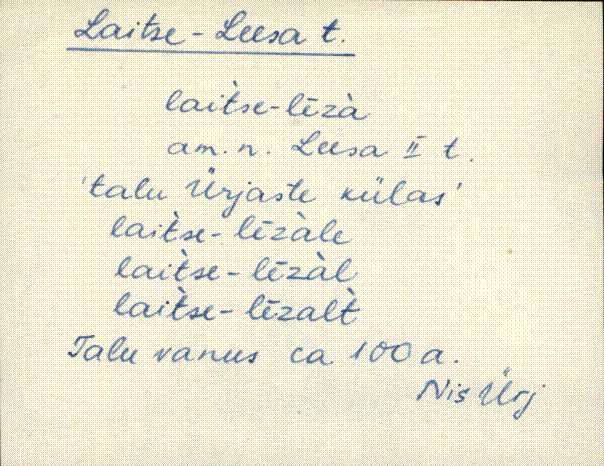 Laitse-Leesa t.
laìtse-lēzà
am. n. Leesa II t.
'talu Ürjaste külas'
laìtse-lēzàle
laìtse-lēzàl
laìtse-lēzalt̀
Talu vanus ca 100 a.
Nis Ürj